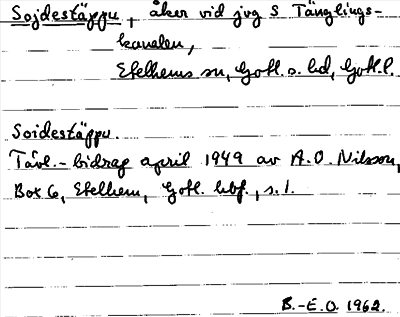 Sojdestäppu, åker vid jvg S Tänglings-
kanalen,
Etelhems sn, Gotl. s. hd, Gotl. l.
Soidestäppu.
Tävl.-bidrag april 1949 av A.O. Nilsson,
Box 6, Etelhem, Gotl. hbf., s. 1.
B.-E.O. 1962.